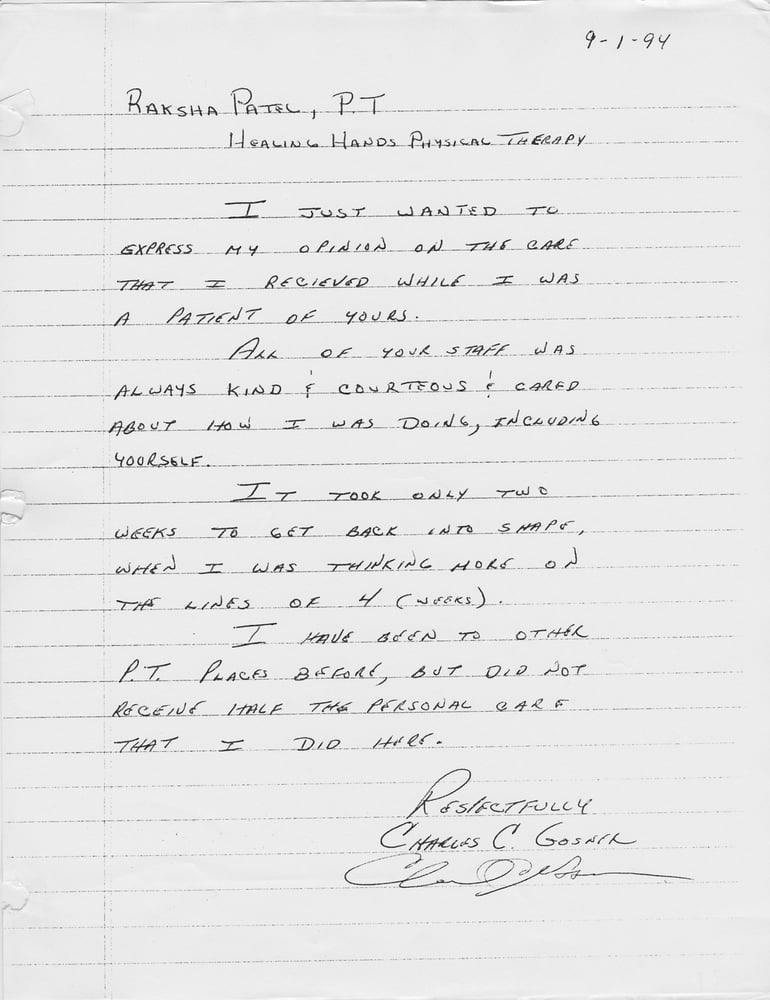 9-1-94
RAKSHA PATEL, P.T
HEALING HANDS PHYSICAL THERAPY
I JUST WANTED TO
EXPRESS MY OPINION ON THE CARE
THAT I RECIEVED WHILE I WAS
A PATIENT OF YOURS.
ALL OF YOUR STAFF WAS
ALWAYS KIND & COURTEOUS & CARED
ABOUT HOW I WAS DOING, INCLUDING
YOORSELF.
IT TOOK ONLY TWO
WEEKS TO GET BACK INTO SHAPE,
WHEN I WAS THINKING MORE ON
THE LINES OF 4 (WEEKS).
I HAVE BEEN TO OTHER
P.T. PLACES BEFORE, BUT DID NOT
RECEIVE HALF THE PERSONAL CARE
THAT I DID HERE.
RESPECTFULLY
CHARLES C. GOSNER